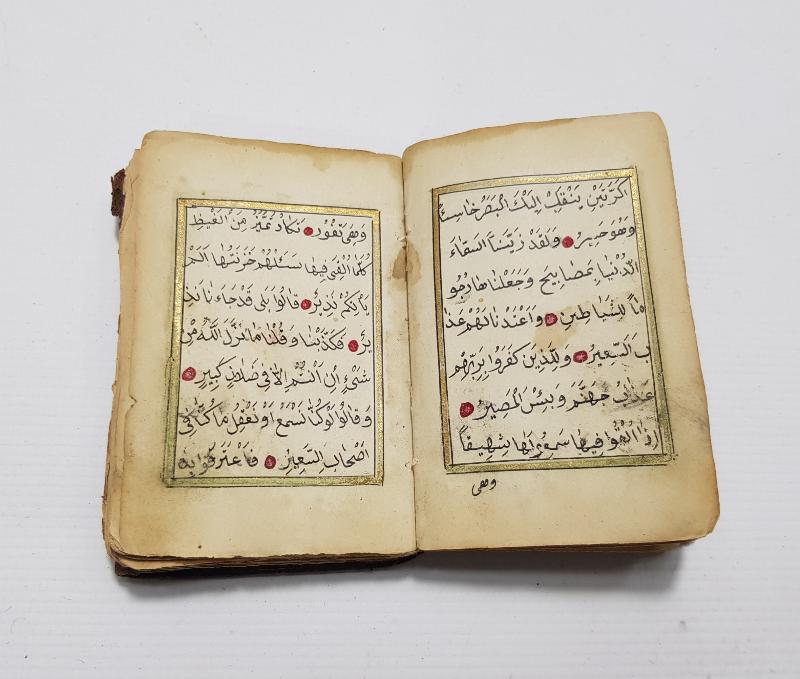 كَرَّتَيْنِ يَنْقَلِبْ اِلَيْكَ الْبَصَرُ خَاسِئاً
وَهُوَ حَسِيرٌ وَلَقَدْ زَيَّنَّا السَّمَاءَ
الدُّنْيَا بِمَصَابِيحَ وَجَعَلْنَاهَا رُجُو
ماً لِلشَّيَاطِينِ وَاَعْتَدْنَا لَهُمْ عَذَا
بَ السَّعِيرِ وَلِلَّذِينَ كَفَرُوا بِرَبِّهِمْ
عَذَابُ جَهَنَّمَ وَبِئْسَ الْمَصِيرُ
اِذَا اُلْقُوا فِيهَا سَمِعُوا لَهَا شَهِيقاً
وهى
وَهِىَ تَفُورُ تَكَادُ تَمَيَّزُ مِنَ الْغَيْظِ
كُلَّمَا اُلْقِىَ فِيهَا سَئَلَهُمْ خَزَنَتُهَا اَلَمْ
يَأْتِكُمْ نَذِيرٌ قَالُوا بَلٰى قَدْ جَاءَنَا نَذِ
يرٌ فَكَذَّبْنَا وَقُلْنَا مَا نَزَّلَ اللّٰهُ مِنْ
شَىْءٍ اِنْ اَنْتُمْ اِلَّا فِى ضَلَالٍ كَبِيرٍ
وَقَالُوا لَوْ كُنَّا نَسْمَعُ اَوْ نَعْقِلُ مَا كُنَّا فِى
اَصْحَابِ السَّعِيرِ فَاعْتَرَفُوا بِذ